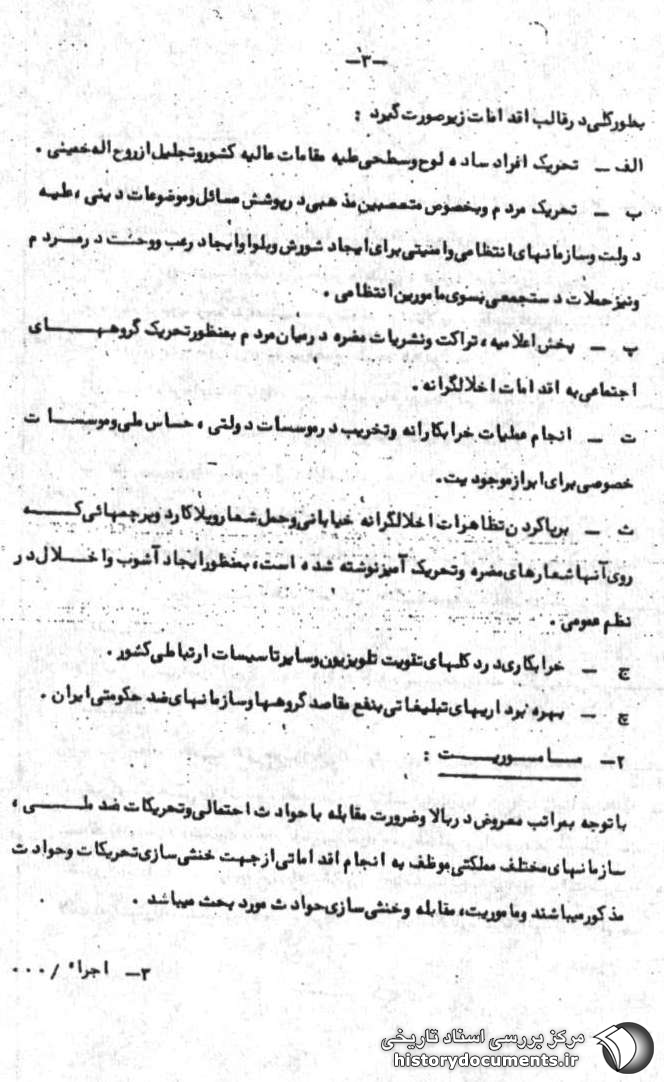 -۳-
بطور کلی در قالب اقدامات زیر صورت گیرد :
الف - تحریک افراد ساده لوح و سطحی علیه مقامات عالیه کشور و تجلیل از روح اله خمینی .
ب - تحریک مردم و بخصوص متعصبین مذهبی در پوشش مسائل و موضوعات دینی ، علیه
دولت و سازمانهای انتظامی و امنیتی برای ایجاد شورش و بلوا و ایجاد رعب و وحشت در مردم
و نیز حملات دستجمعی بسوی مامورین انتظامی .
پ - پخش اعلامیه ، تراکت و نشریات مضره در میان مردم بمنظور تحریک گروههای
اجتماعی به اقدامات اخلالگرانه .
ت - انجام عملیات خرابکارانه و تخریب در موسسات دولتی ، حساس ملی و موسسات
خصوصی برای ابراز موجودیت .
ث - برپا کردن تظاهرات اخلالگرانه خیابانی و حمل شعار و پلاکارد و پرچمهائی که
روی آنها شعارهای مضره و تحریک آمیز نوشته شده است ، بمنظور ایجاد آشوب و اخلال در
نظم عمومی .
ج - خرابکاری در دکلهای تقویت تلویزیون و سایر تاسیسات ارتباطی کشور .
چ - بهره برداریهای تبلیغاتی بنفع مقاصد گروهها و سازمانهای ضد حکومتی ایران .
۲- ماموریت :
با توجه بمراتب معروض در بالا و ضرورت مقابله با حوادث احتمالی و تحریکات ضد ملی ،
سازمانهای مختلف مملکتی موظف به انجام اقداماتی از جهت خنثی سازی تحریکات و حوادث
مذکور میباشند و ماموریت ، مقابله و خنثی سازی حوادث مورد بحث میباشد .
۳- اجراء / ...
مرکز بررسی اسناد تاریخی
historydocuments.ir